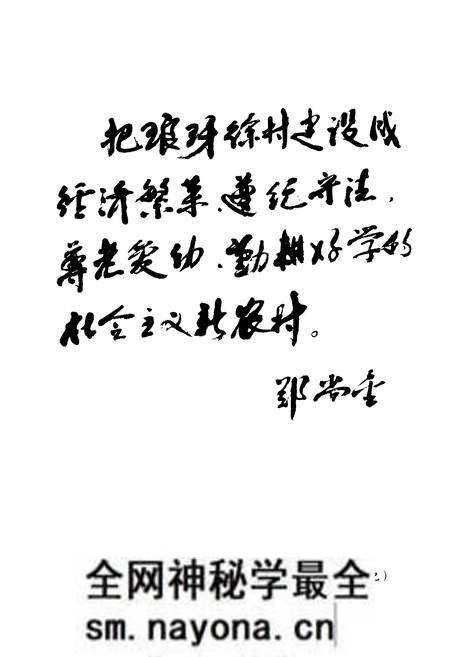 把琅玡徐村建设成
经济繁荣、遵纪守法，
尊老爱幼、勤耕好学的
社会主义新农村。
郑尚金
全网神秘学最全
sm.nayona.cn